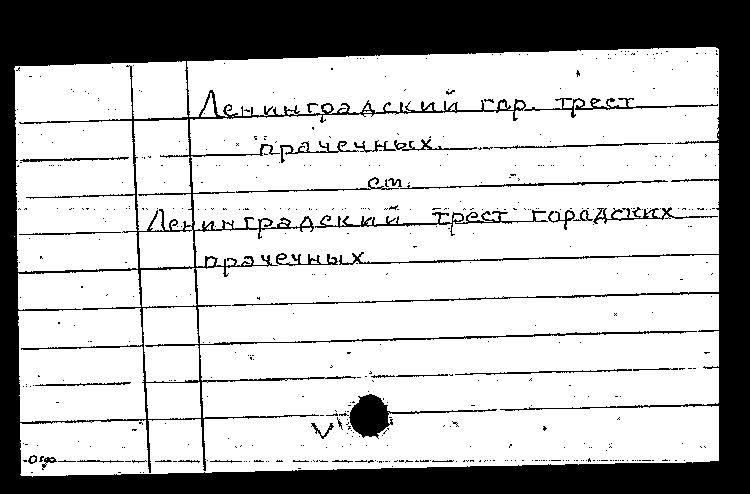 Ленинградский гор. трест
прачечных.
см.
Ленинградский трест городских
прачечных
V